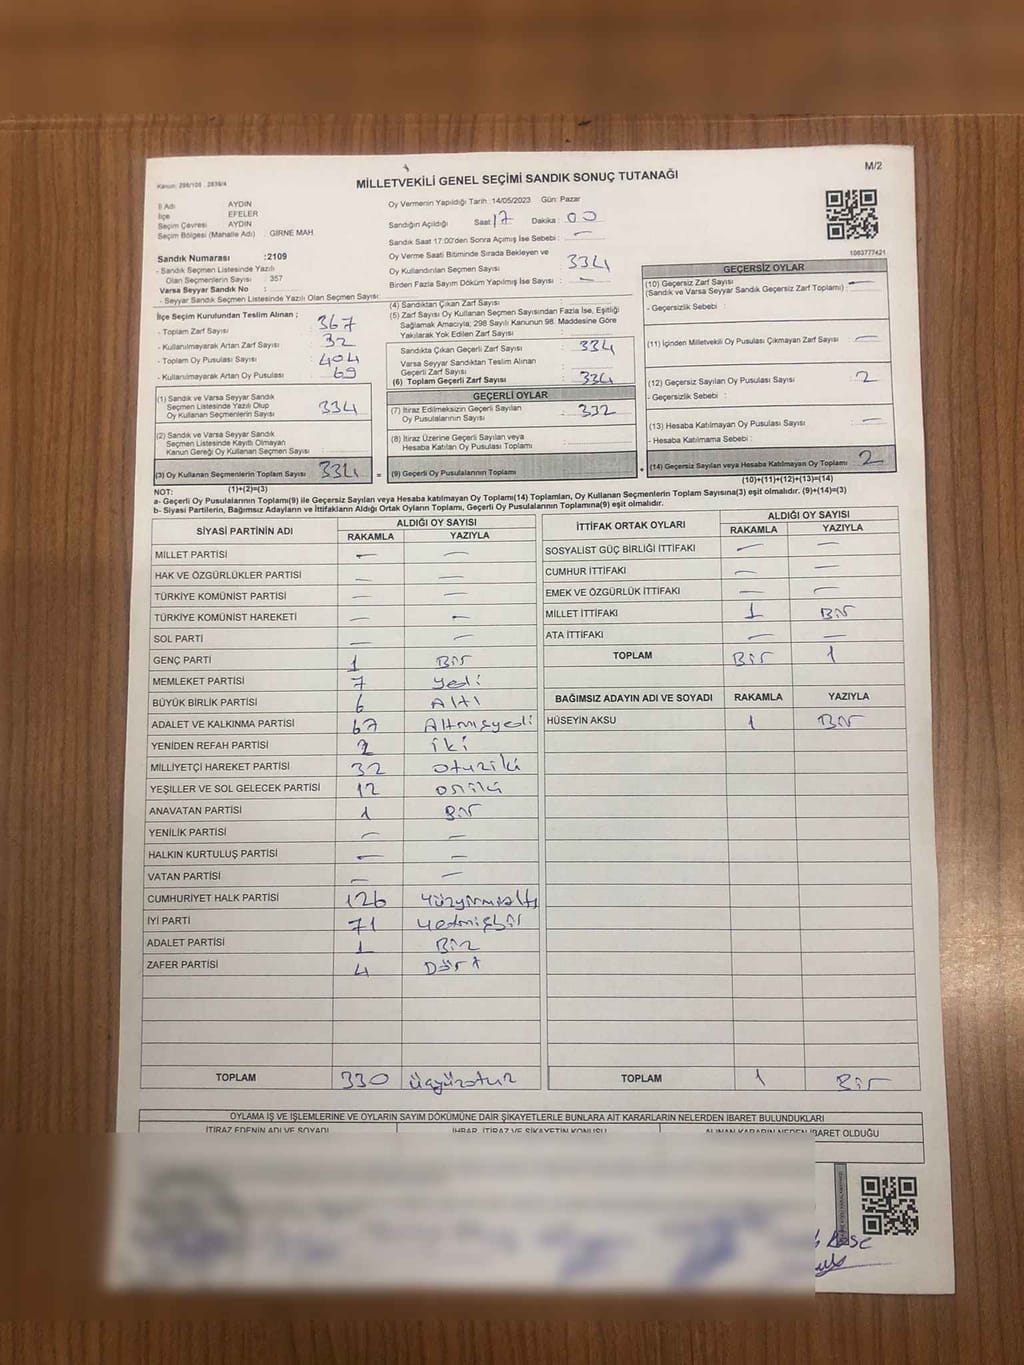 M/2
Kanun: 298/105 , 2839/4
MİLLETVEKİLİ GENEL SEÇİMİ SANDIK SONUÇ TUTANAĞI
İl Adı AYDIN
İlçe EFELER
Seçim Çevresi AYDIN
Seçim Bölgesi (Mahalle Adı) : GİRNE MAH
Sandık Numarası :2109
- Sandık Seçmen Listesinde Yazılı
Olan Seçmenlerin Sayısı : 357
Varsa Seyyar Sandık No :
- Seyyar Sandık Seçmen Listesinde Yazılı Olan Seçmen Sayısı:
İlçe Seçim Kurulundan Teslim Alınan ;
- Toplam Zarf Sayısı : 367
- Kullanılmayarak Artan Zarf Sayısı : 32
- Toplam Oy Pusulası Sayısı : 404
- Kullanılmayarak Artan Oy Pusulası : 69
(1) Sandık ve Varsa Seyyar Sandık
Seçmen Listesinde Yazılı Olup
Oy Kullanan Seçmenlerin Sayısı : 334
(2) Sandık ve Varsa Seyyar Sandık
Seçmen Listesinde Kaydı Olmayan
Kanun Gereği Oy Kullanan Seçmen Sayısı :
(3) Oy Kullanan Seçmenlerin Toplam Sayısı : 334 =
(1)+(2)=(3)
Oy Vermenin Yapıldığı Tarih : 14/05/2023 Gün: Pazar
Sandığın Açıldığı Saat : 17 Dakika : 00
Sandık Saat 17:00'den Sonra Açılmış İse Sebebi : —
Oy Verme Saati Bitiminde Sırada Bekleyen ve
Oy Kullandırılan Seçmen Sayısı : 334
Birden Fazla Sayım Döküm Yapılmış İse Sayısı : —
(4) Sandıktan Çıkan Zarf Sayısı :
(5) Zarf Sayısı Oy Kullanan Seçmen Sayısından Fazla İse, Eşitliği
Sağlamak Amacıyla; 298 Sayılı Kanunun 98. Maddesine Göre
Yakılarak Yok Edilen Zarf Sayısı :
Sandıkta Çıkan Geçerli Zarf Sayısı : 334
Varsa Seyyar Sandıktan Teslim Alınan
Geçerli Zarf Sayısı :
(6) Toplam Geçerli Zarf Sayısı : 334
GEÇERLİ OYLAR
(7) İtiraz Edilmeksizin Geçerli Sayılan
Oy Pusulalarının Sayısı : 332
(8) İtiraz Üzerine Geçerli Sayılan veya
Hesaba Katılan Oy Pusulası Toplamı :
(9) Geçerli Oy Pusulalarının Toplamı +
1063777421
GEÇERSİZ OYLAR
(10) Geçersiz Zarf Sayısı
(Sandık ve Varsa Seyyar Sandık Geçersiz Zarf Toplamı) : —
- Geçersizlik Sebebi :
(11) İçinden Milletvekili Oy Pusulası Çıkmayan Zarf Sayısı : —
(12) Geçersiz Sayılan Oy Pusulası Sayısı : 2
- Geçersizlik Sebebi :
(13) Hesaba Katılmayan Oy Pusulası Sayısı : —
- Hesaba Katılmama Sebebi :
(14) Geçersiz Sayılan veya Hesaba Katılmayan Oy Toplamı : 2
(10)+(11)+(12)+(13)=(14)
NOT:
a- Geçerli Oy Pusulalarının Toplamı(9) ile Geçersiz Sayılan veya Hesaba katılmayan Oy Toplamı(14) Toplamları, Oy Kullanan Seçmenlerin Toplam Sayısına(3) eşit olmalıdır. (9)+(14)=(3)
b- Siyasi Partilerin, Bağımsız Adayların ve İttifakların Aldığı Ortak Oyların Toplamı, Geçerli Oy Pusulalarının Toplamına(9) eşit olmalıdır.
SİYASİ PARTİNİN ADI ALDIĞI OY SAYISI
RAKAMLA YAZIYLA
MİLLET PARTİSİ — —
HAK VE ÖZGÜRLÜKLER PARTİSİ — —
TÜRKİYE KOMÜNİST PARTİSİ — —
TÜRKİYE KOMÜNİST HAREKETİ — —
SOL PARTİ — —
GENÇ PARTİ 1 Bir
MEMLEKET PARTİSİ 7 yedi
BÜYÜK BİRLİK PARTİSİ 6 Altı
ADALET VE KALKINMA PARTİSİ 67 Altmışyedi
YENİDEN REFAH PARTİSİ 2 iki
MİLLİYETÇİ HAREKET PARTİSİ 32 otuziki
YEŞİLLER VE SOL GELECEK PARTİSİ 12 oniki
ANAVATAN PARTİSİ 1 Bir
YENİLİK PARTİSİ — —
HALKIN KURTULUŞ PARTİSİ — —
VATAN PARTİSİ — —
CUMHURİYET HALK PARTİSİ 126 yüzyirmialtı
İYİ PARTİ 71 yetmişbir
ADALET PARTİSİ 1 Bir
ZAFER PARTİSİ 4 Dört
TOPLAM 330 üçyüzotuz
İTTİFAK ORTAK OYLARI ALDIĞI OY SAYISI
RAKAMLA YAZIYLA
SOSYALİST GÜÇ BİRLİĞİ İTTİFAKI — —
CUMHUR İTTİFAKI — —
EMEK VE ÖZGÜRLÜK İTTİFAKI — —
MİLLET İTTİFAKI 1 Bir
ATA İTTİFAKI — —
TOPLAM Bir 1
BAĞIMSIZ ADAYIN ADI VE SOYADI RAKAMLA YAZIYLA
HÜSEYİN AKSU 1 Bir
TOPLAM 1 Bir
OYLAMA İŞ VE İŞLEMLERİNE VE OYLARIN SAYIM DÖKÜMÜNE DAİR ŞİKAYETLERLE BUNLARA AİT KARARLARIN NELERDEN İBARET BULUNDUKLARI
İTİRAZ EDENİN ADI VE SOYADI İHBAR, İTİRAZ VE ŞİKAYETİN KONUSU ALINAN KARARIN NEDEN İBARET OLDUĞU